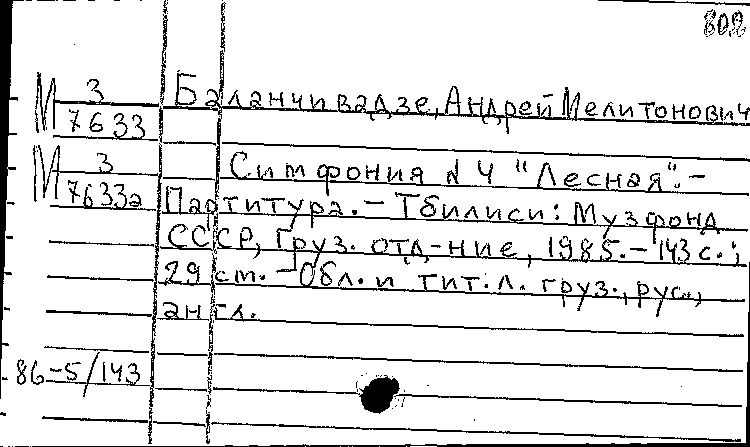 802
М 3/7633 Баланчивадзе, Андрей Мелитонович
М 3/7633а Симфония № 4 "Лесная".-
Партитура.- Тбилиси: Музфонд
СССР, Груз. отд-ние, 1985.- 143 с.;
29 см.- Обл. и тит. л. груз., рус.,
англ.
86-5/143